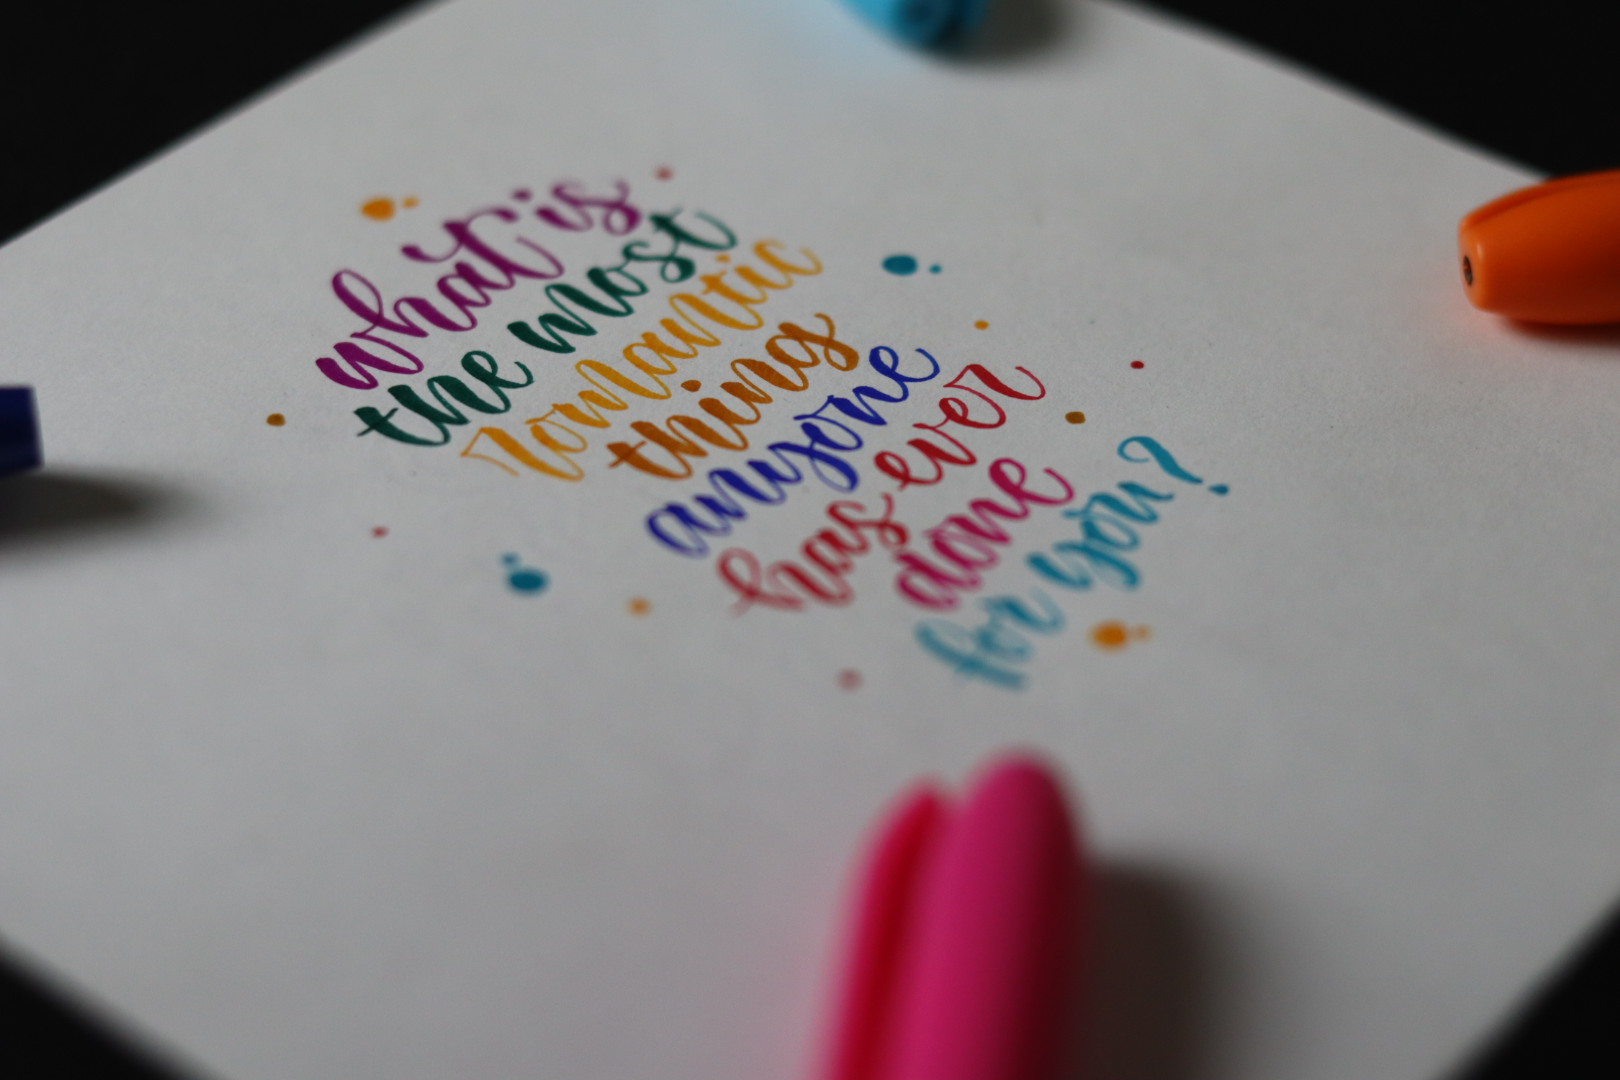 what is
the most
romantic
thing
anyone
has ever
done
for you?